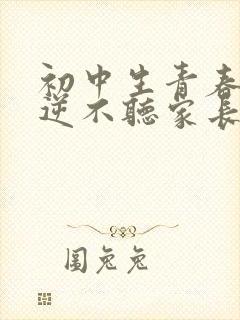 初中生青春
逆不聽家長
圖兔兔